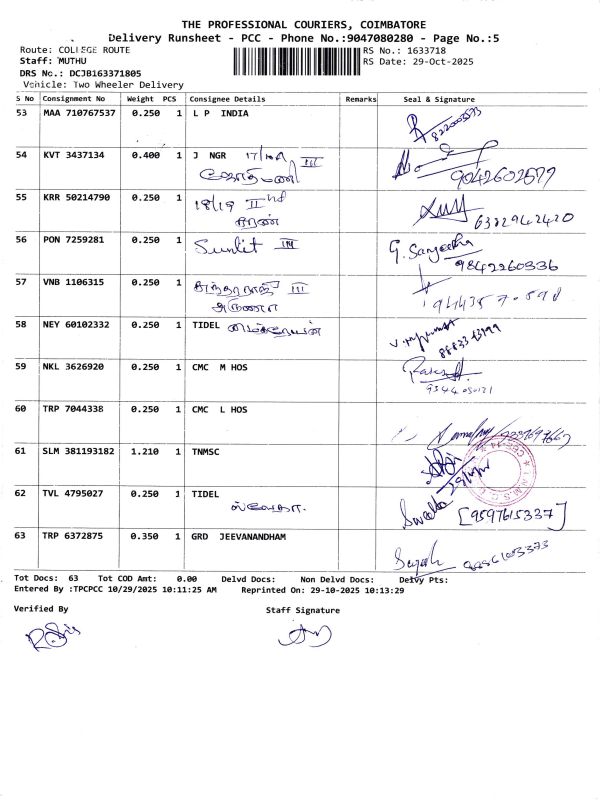 THE PROFESSIONAL COURIERS, COIMBATORE
Delivery Runsheet - PCC - Phone No.:9047080280 - Page No.:5
Route: COLLEGE ROUTE RS No.: 1633718
Staff: MUTHU RS Date: 29-Oct-2025
DRS No.: DCJB163371805
Vehicle: Two Wheeler Delivery
S No Consignment No Weight PCS Consignee Details Remarks Seal & Signature
53 MAA 710767537 0.250 1 L P INDIA
54 KVT 3437134 0.400 1 J NGR 17/10A III
9042602577
55 KRR 50214790 0.250 1 18/19 IInd
சரண் 6382942420
56 PON 7259281 0.250 1 Sunlit III G. Sangeetha
9842260336
57 VNB 1106315 0.250 1 III
அருணா
58 NEY 60102332 0.250 1 TIDEL
59 NKL 3626920 0.250 1 CMC M HOS
60 TRP 7044338 0.250 1 CMC L HOS
61 SLM 381193182 1.210 1 TNMSC
62 TVL 4795027 0.250 1 TIDEL Swetha [9597615337]
63 TRP 6372875 0.350 1 GRD JEEVANANDHAM
Tot Docs: 63 Tot COD Amt: 0.00 Delvd Docs: Non Delvd Docs: Delvy Pts:
Entered By :TPCPCC 10/29/2025 10:11:25 AM Reprinted On: 29-10-2025 10:13:29
Verified By Staff Signature